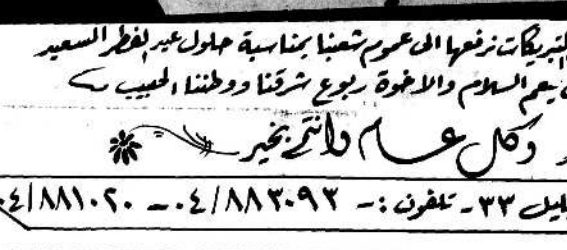 التبريكات نرفعها الى عموم شعبنا بمناسبة حلول عيد الفطر السعيد
يعم السلام والاخوة ربوع شرقنا ووطننا الحبيب
وكل عام وانتم بخير
٣٣ - تلفون :- ٠٤/٨٨٣٠٩٣ - ٠٤/٨٨١٠٢٠